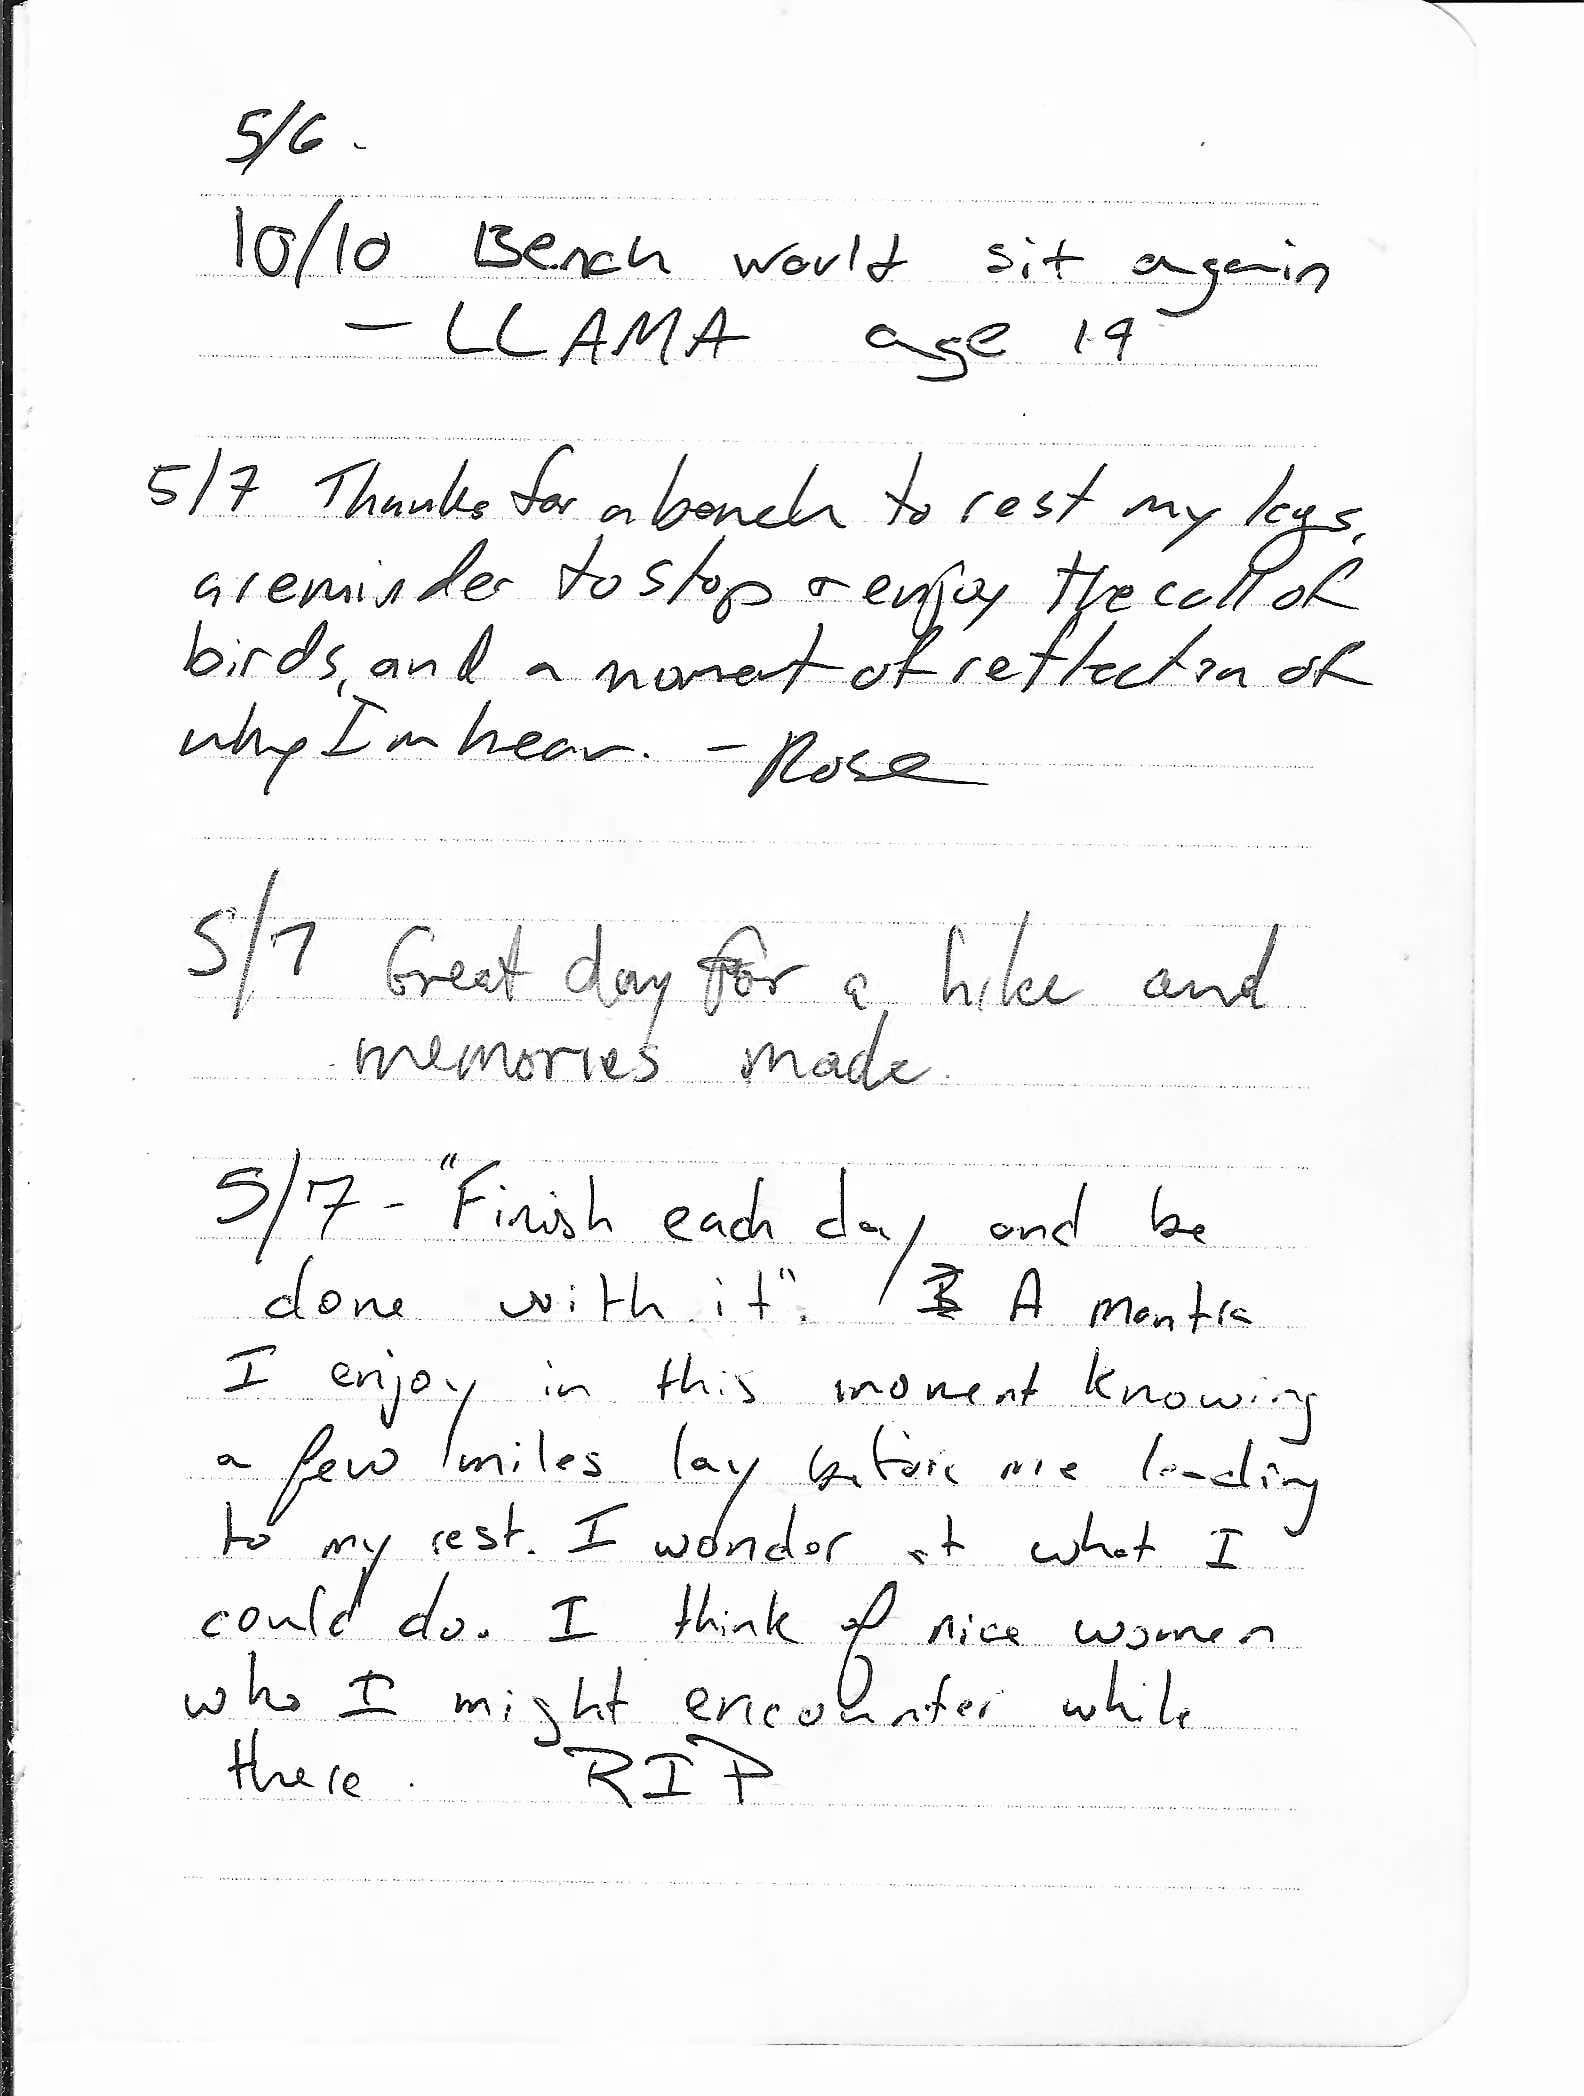 5/6.
10/10 Bench would sit again
- LLAMA age 19
5/7 Thanks for a bench to rest my legs,
a reminder to stop + enjoy the call of
birds, and a moment of reflection of
why I'm hear. - Rose
5/7 Great day for a hike and
memories made.
5/7 - "Finish each day and be
done with it". A mantra
I enjoy in this moment knowing
a few miles lay before me leading
to my rest. I wonder at what I
could do. I think of nice women
who I might encounter while
there. RIP